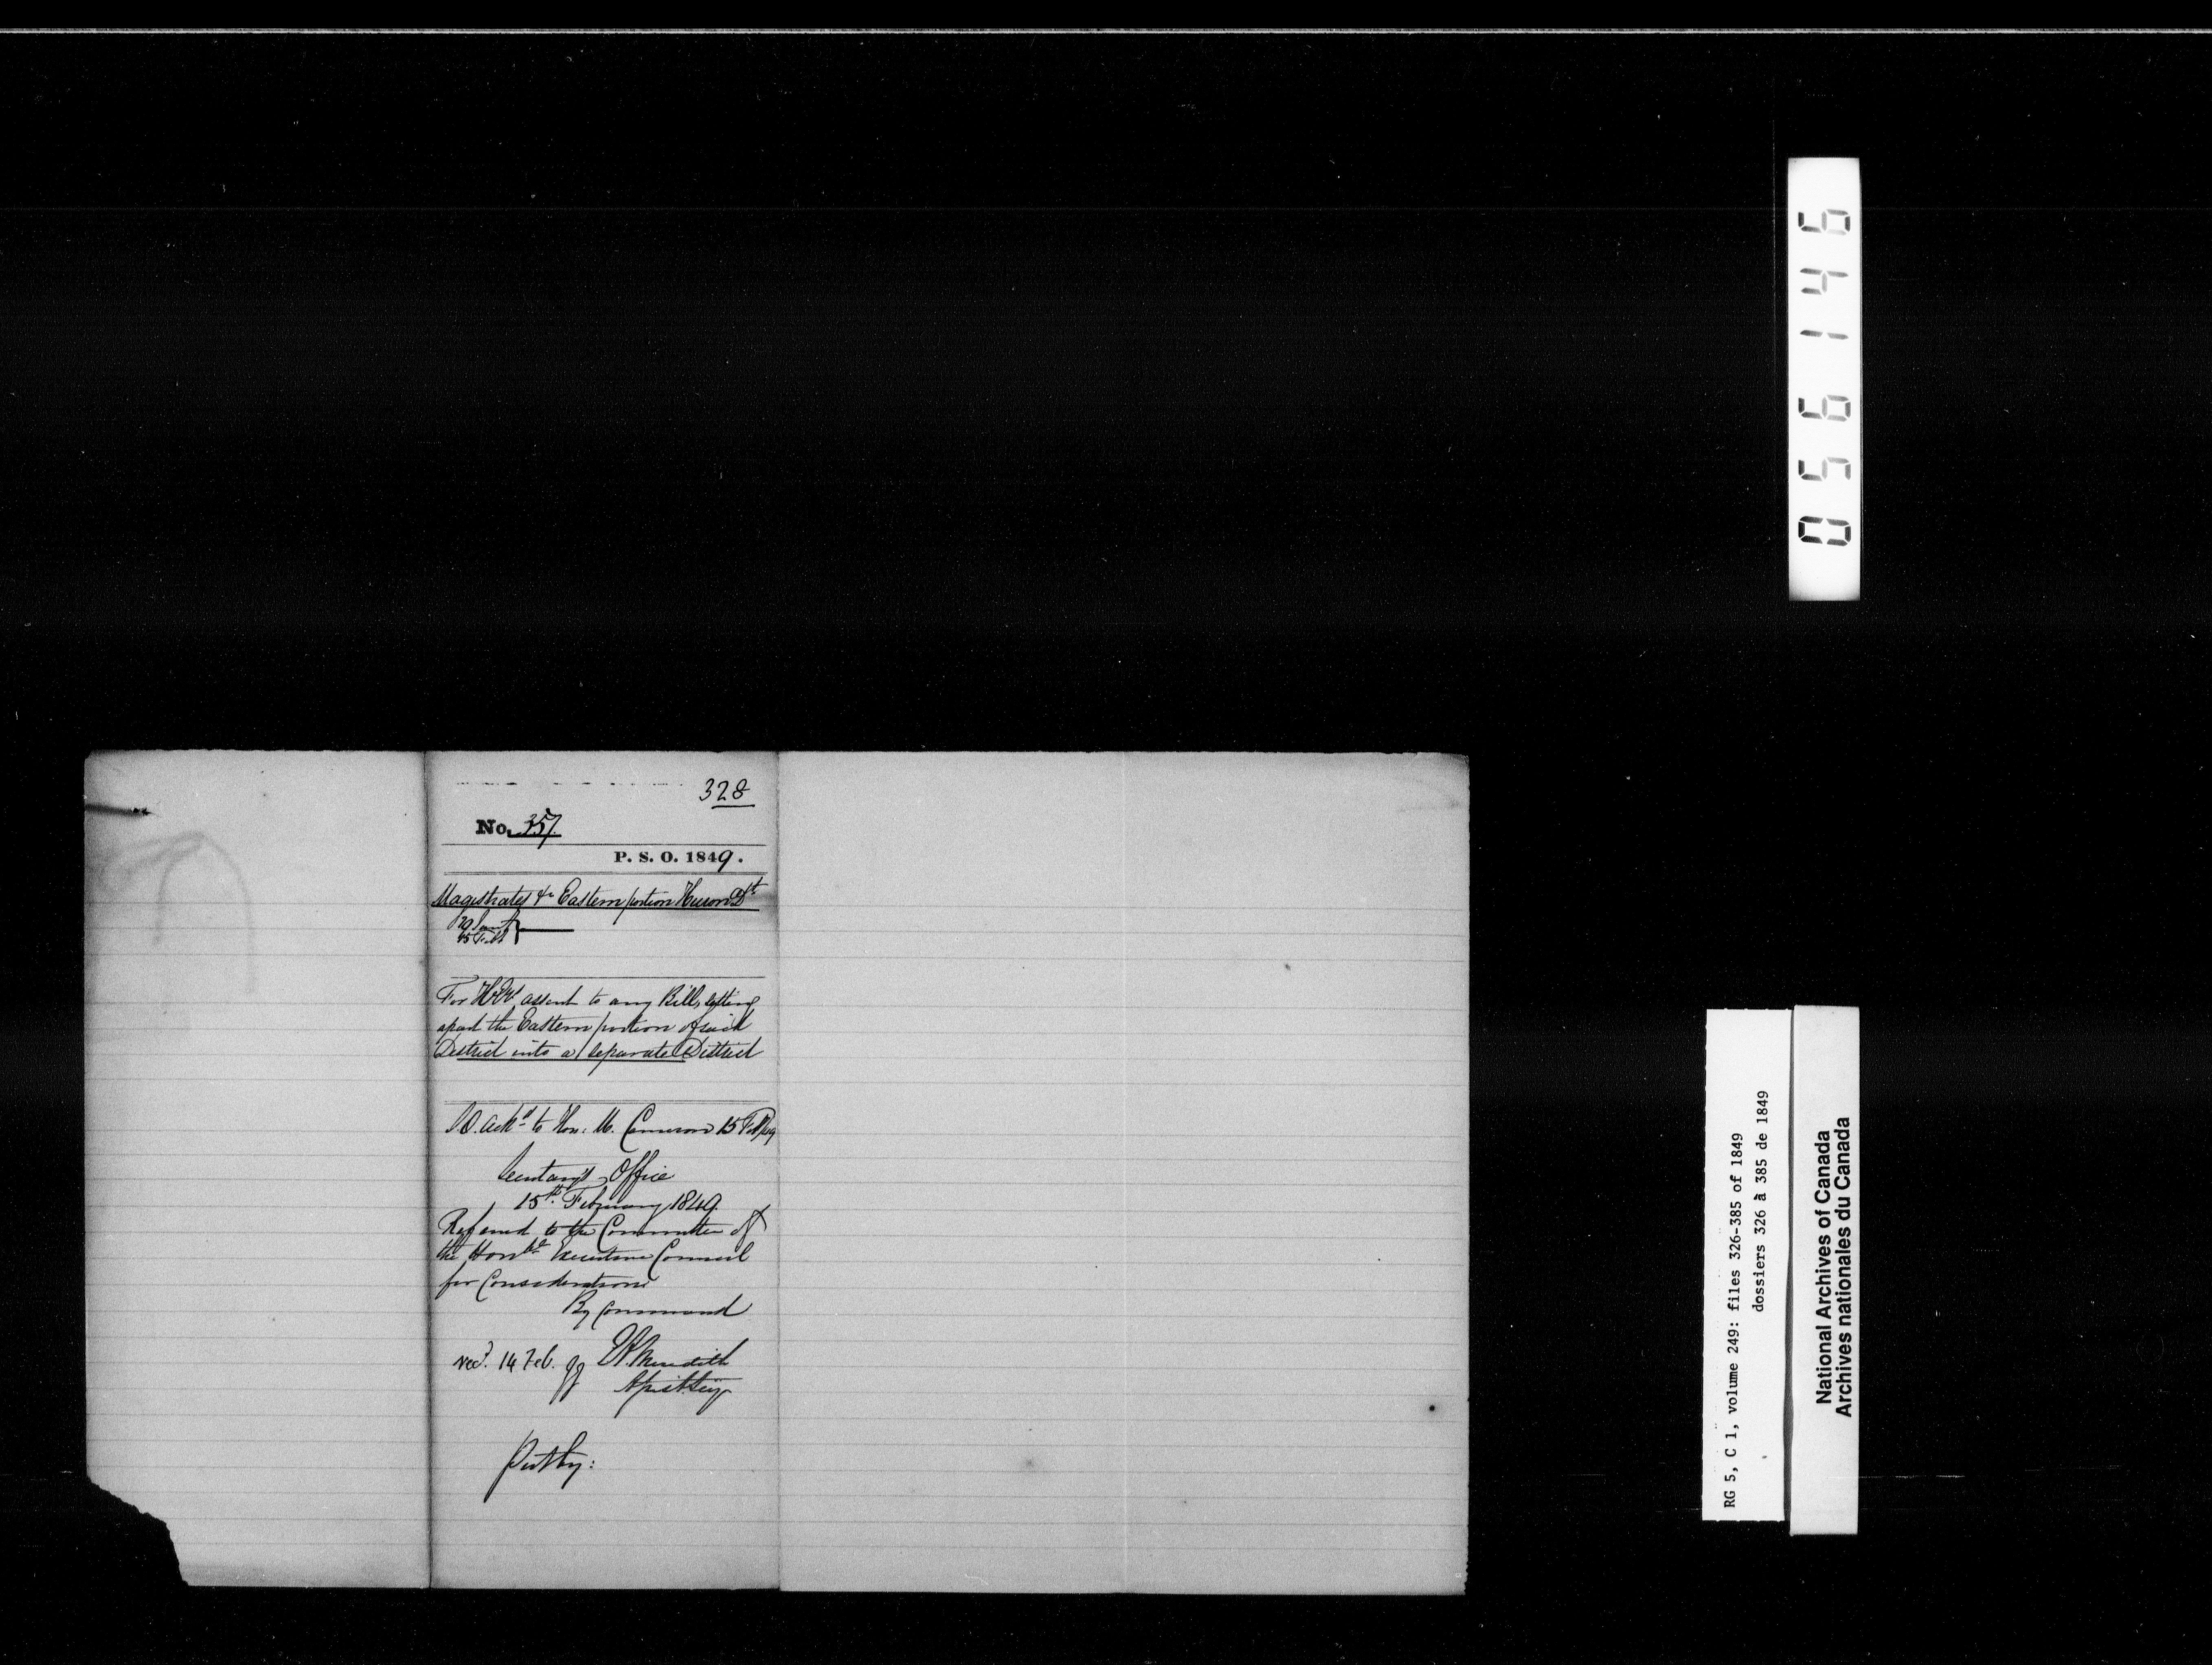 328
No. 357
P. S. O. 1849.
Magistrates &c Eastern portion Huron Dt
For H. E's assent to any Bill, setting
apart the Eastern portion of said
District into a separate District
Ackd to Hon: M. Cameron 15 Feb
Secretary's Office
15th February 1849
Referred to the Committee of
the Honble Executive Council
for Consideration
By Command
recd. 14 Feb. Meredith
Put by:
056146
RG 5, C 1, volume 249: files 326-385 of 1849
dossiers 326 à 385 de 1849
National Archives of Canada
Archives nationales du Canada